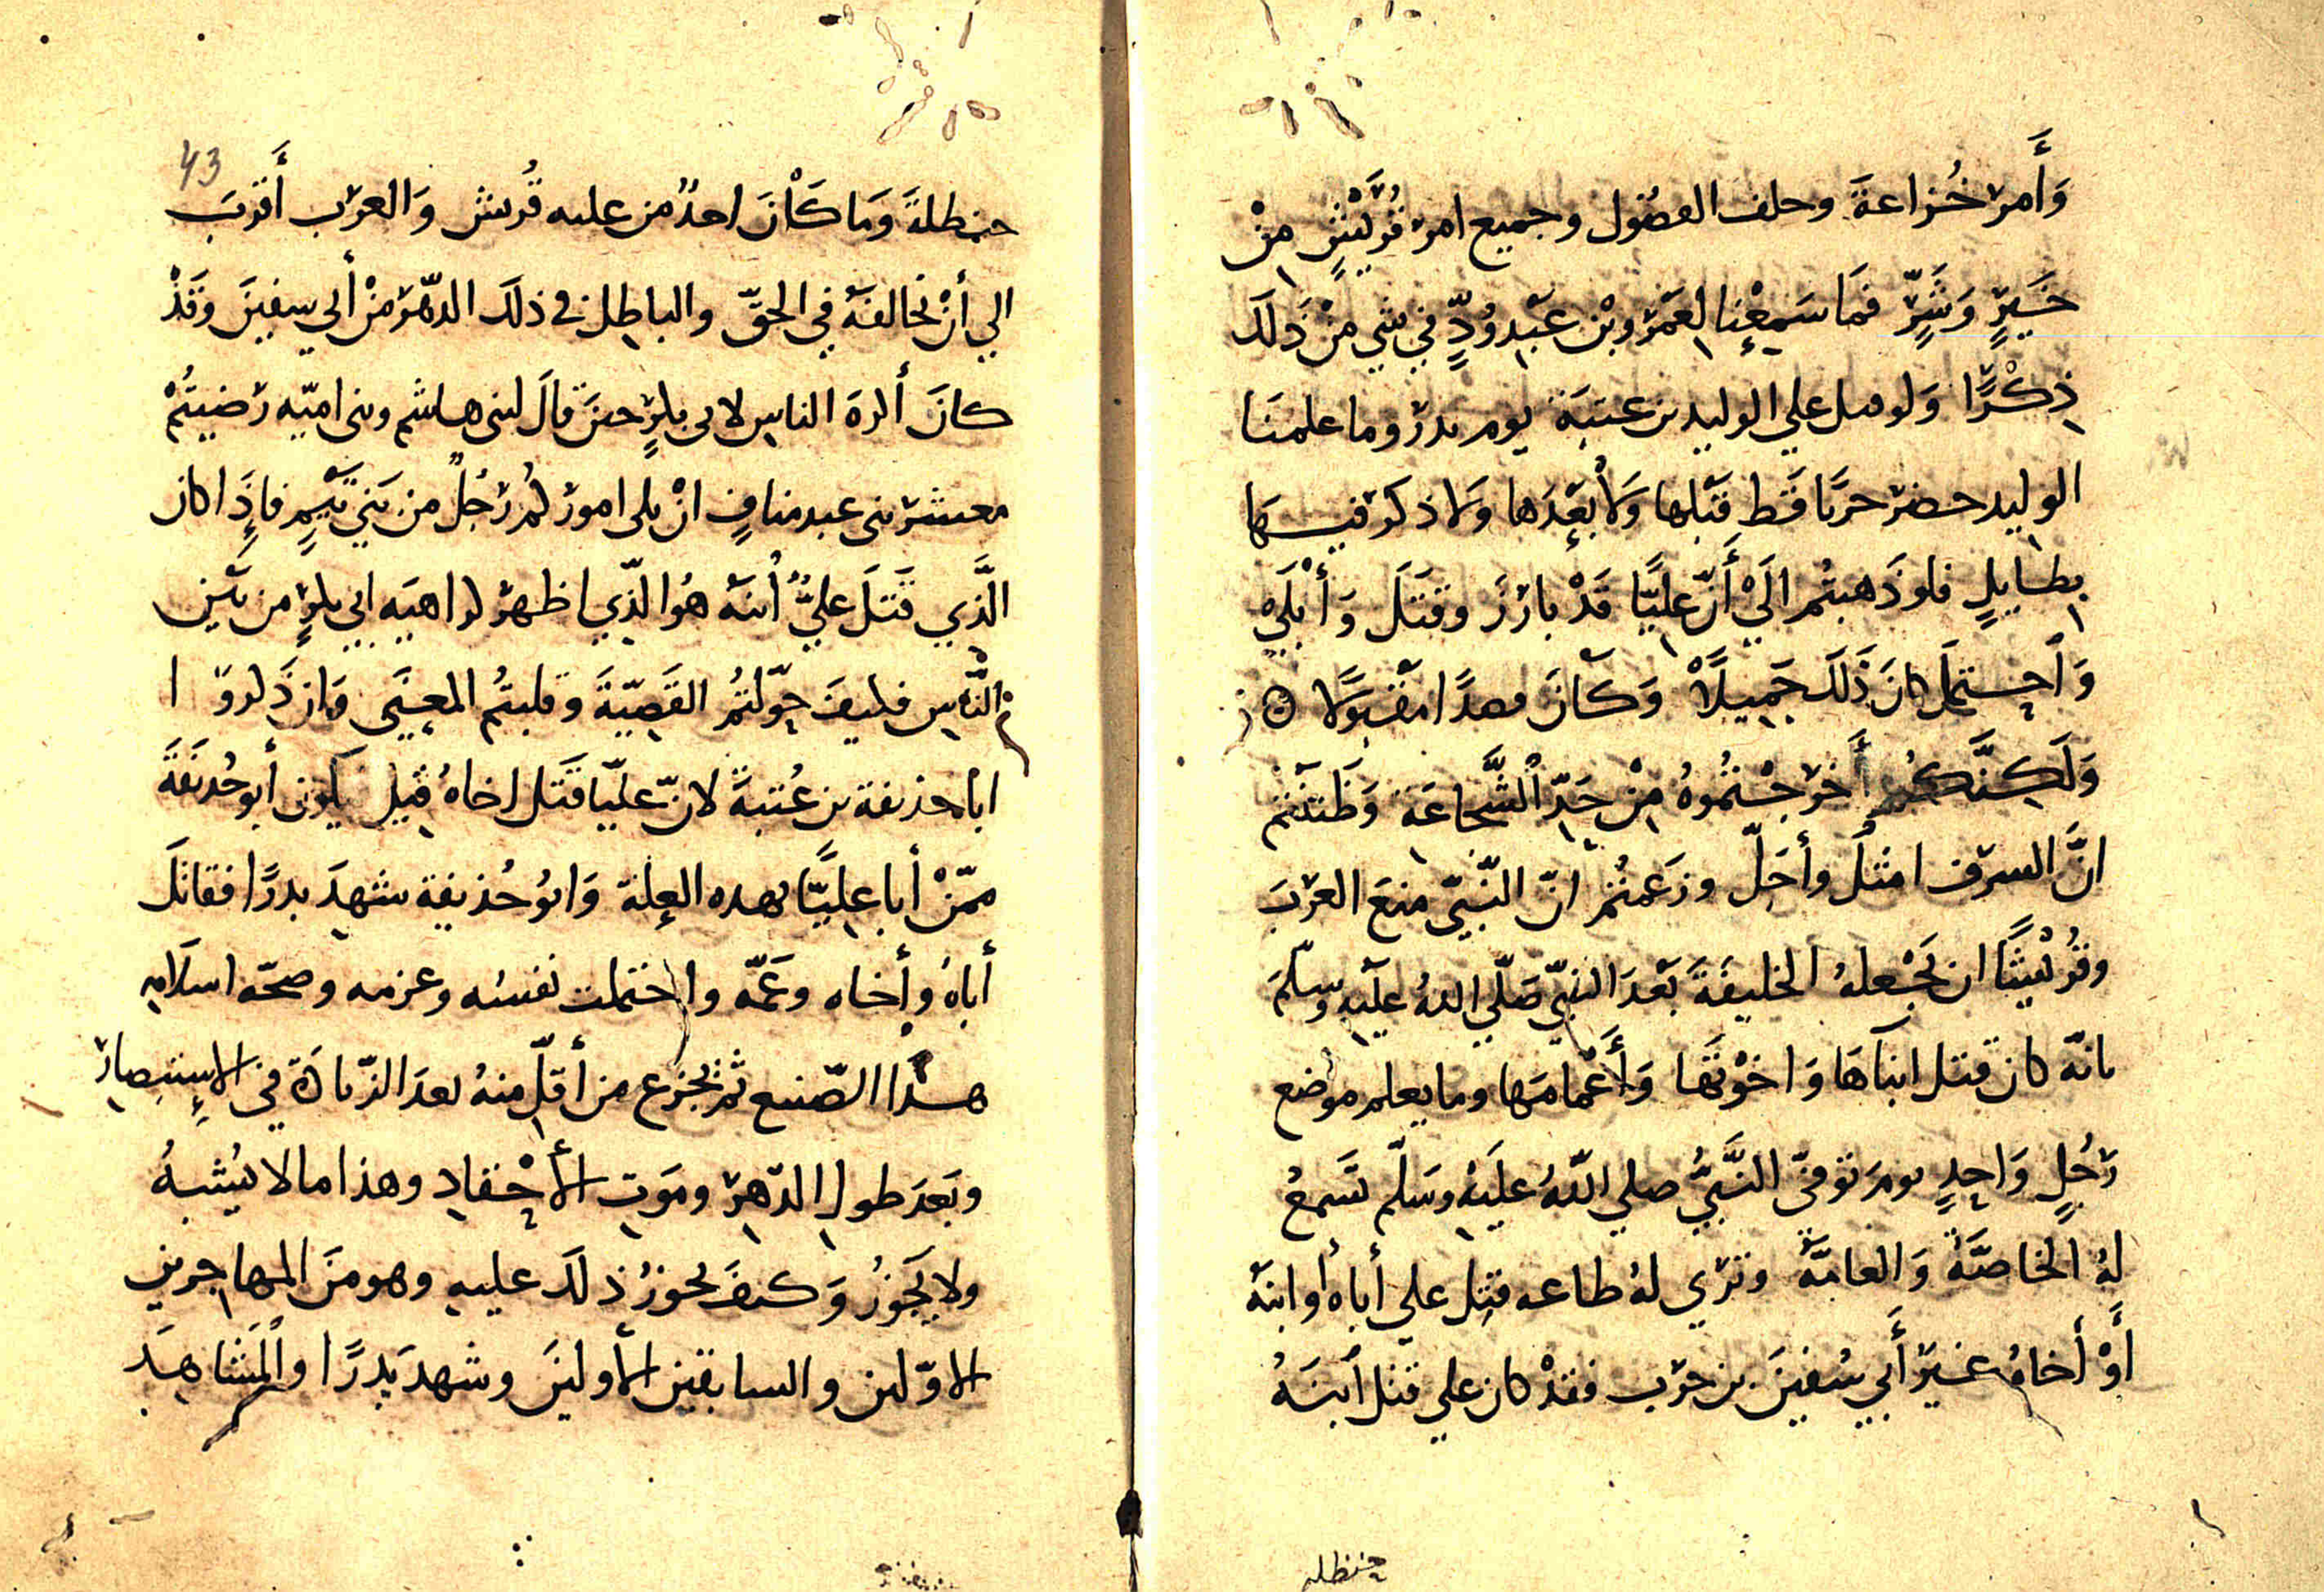 وَأَمر خُزاعةَ وحلف الفضُول وجميع امر قُرَيْشٍ مِنْ
خَيرٍ وَشَرٍّ فمَا سَمِعْنا لِعَمْرو بْن عَبْدِ وُدٍّ في شيٍ مِنْ ذَلَكَ
ذِكْرًا وَلو على الوليد بن عتبَة يوم بدر وما علمنَا
الوليد حضر حربًا قَط قَبْلها وَلا بَعْدَها وَلا ذكر فيها
بطايلٍ فلو ذَهبتُم الَيْ أَنّ عليًّا قَدْ بارَزَ وقتَلَ وَأَبْلَيْ
وَاحتمل كانَ ذَلَكَ جَمِيلًا وَكَانَ مقبولا
وَلَكِنَّكُم أَخرَجْتمُوهُ مِنْ حَدِّ الشَّجَاعَة وَظَننتُم
انَّ السرَف امثَل وأجَلّ وزَعَمتُم انّ النَّبيّ منعَ العَرَبَ
وقُرَيْشًا ان تَجْعلهُ الخليفَةَ بَعْدَ النبيّ صَلّي اللهُ عليْهِ وسلّمَ
بانّه كان قتل ابنآهَا وَاخوْتَهَا وَأَعْمَامَها وما يعلم موضع
رَجُلٍ وَاحِدٍ يومَ توفيّ النَّبيُّ صلي اللهُ علَيْهِ وسَلّم تسَمعُ
لهُ الخاصَّةُ وَالعامَّةُ وتَرَي لهُ طاعه قتِل علي أباهُ أو ابنَهُ
أَوْ أخاهُ غيرَ أَبي سُفينَ بن حَرب فقدْ كان علي قتل ابنَهُ
حنظله
43
حنظلةَ وَمَا كَانَ احدٌ من عليه قُريش وَالعرب أَقرَبَ
الي أنْ تخالفَهُ في الحقّ والباطِل في ذلكَ الدهْر مِنْ أبي سفينَ وَقَدْ
كانَ أكرهَ الناسِ لابى بكرٍ حينَ قالَ لبنى هاشم وبنى اميّه رَضيتُمْ
معشر بنى عبد منافٍ انْ يلى اموركُم رَجُلٌ من بَني تَيْمٍ فاذَا كان
الَّذِي قَتَلَ عليٌّ اُبنَهُ هُوَ الّذي اظهر كراهيَه ابي بكرٍ من بَيْنِ
النَّاسِ فكيفَ حَوّلتُم القَصِيّةَ وقلبتُم المعنَى وَان ذَكروَا
ابا حذيفة بن عُتبةَ لانّ عليًّا قَتَل اخاهُ قيل يكون أبو حُذيفَةَ
ممّنْ أبا عليًّا بهده العِلة وَابُو حُذيفة شهِدَ بدرًا فقاتَلَ
أباهُ وأخاه وعَمَّه واحتملت نفسُه وعزمه وصحّه اسلامِهِ
هذا الصّنيع ثم يجزع من أقلّ منهُ بعدَ الزّيادَة في الاِستبِصارِ
وبَعدَ طولِ الدّهِرِ ومَوتِ الأَحْقادِ وهذا ما لا يُشبهُ
ولا يَجُوزُ وَكيفَ يجوزُ ذلكَ عليهِ وهو منَ المهاجرين
الاوّلين والسابقين الأولينَ وشهدَ بَدرًا والمَشاهِدَ